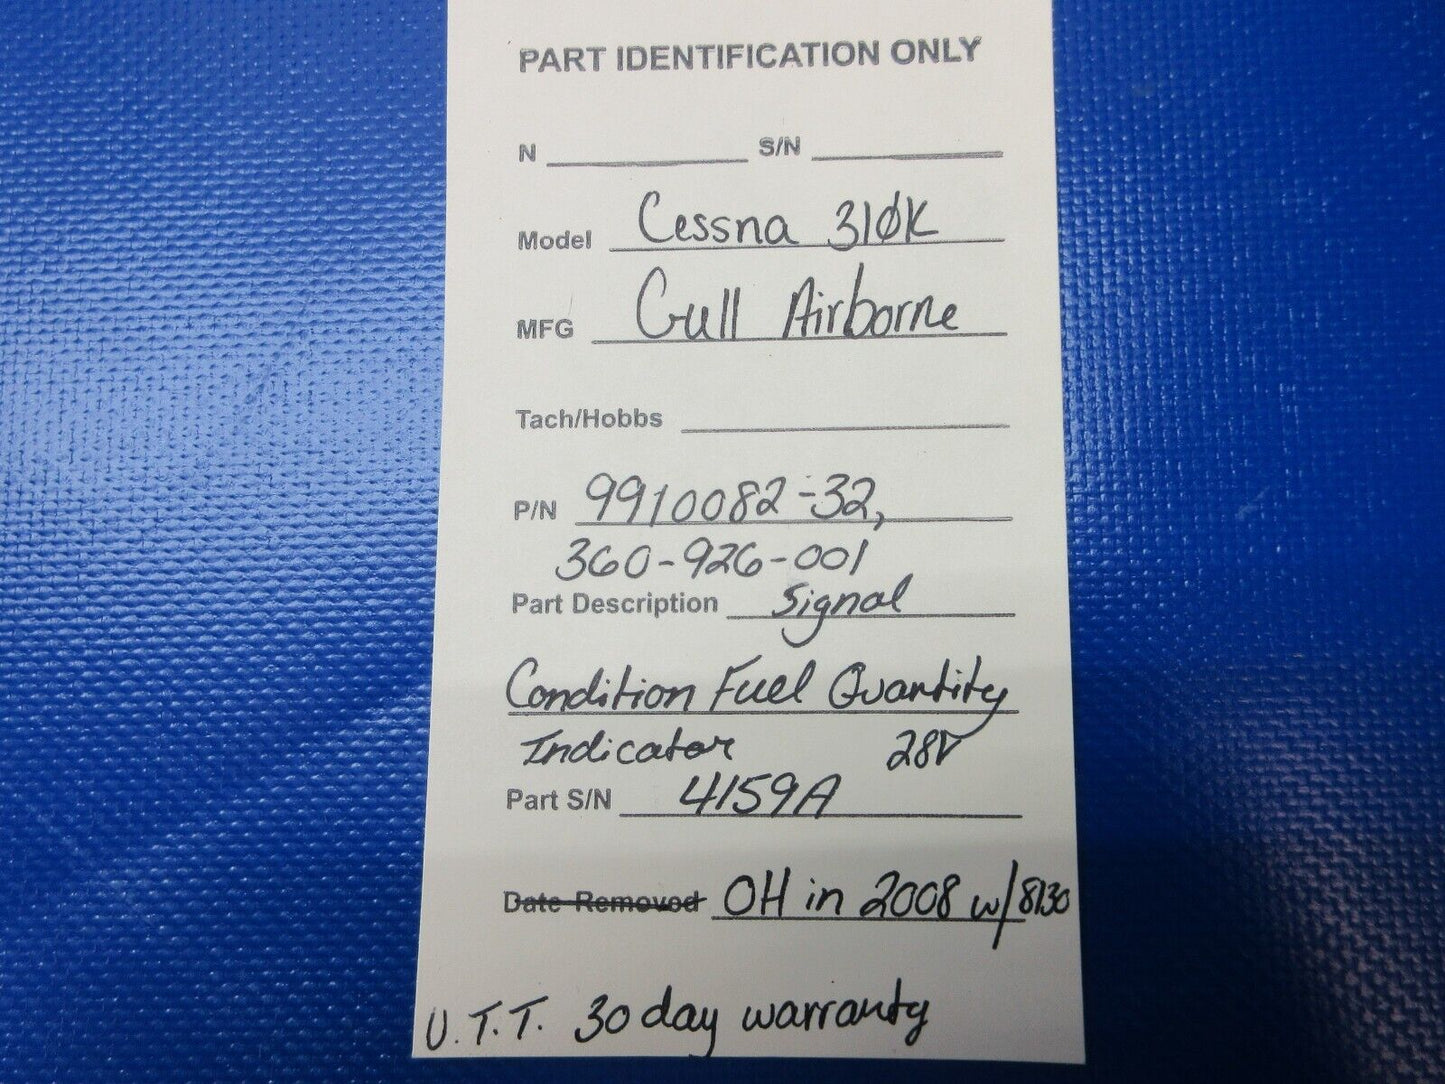 PART IDENTIFICATION ONLY
N S/N
Model Cessna 310K
MFG Gull Airborne
Tach/Hobbs
P/N 9910082-32,
360-926-001
Part Description Signal
Condition Fuel Quantity
Indicator 28V
Part S/N 4159A
Date Removed OH in 2008 w/8130
U.T.T. 30 day warranty